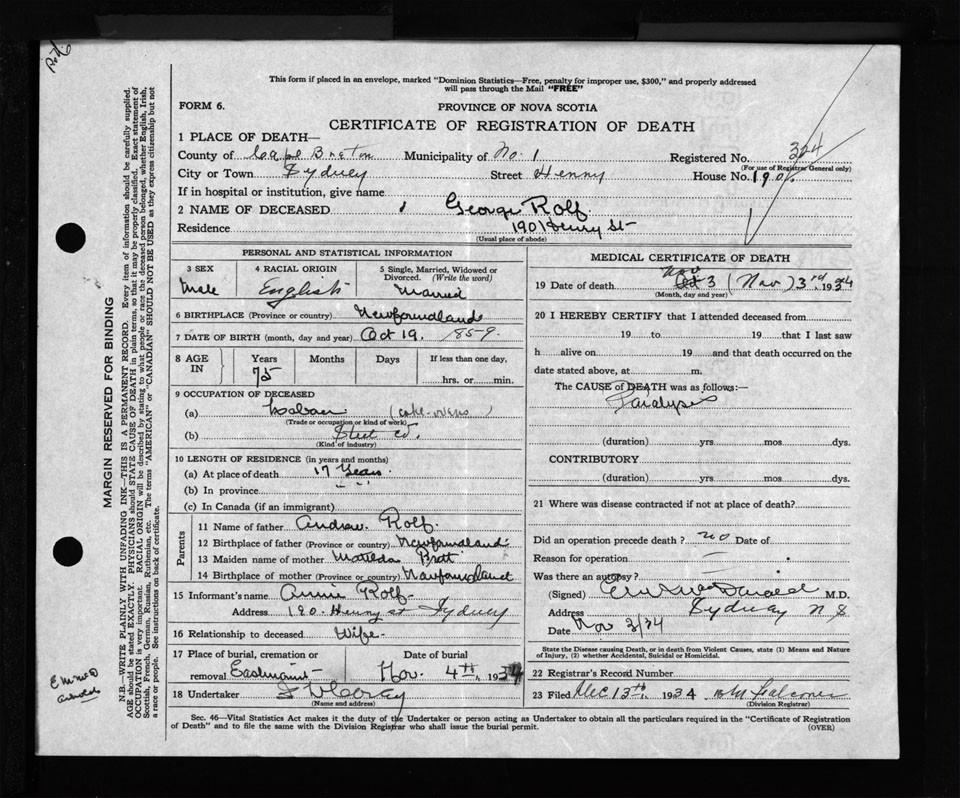 This form if placed in an envelope, marked "Dominion Statistics—Free, penalty for improper use, $300," and properly addressed
will pass through the Mail "FREE"
FORM 6.
PROVINCE OF NOVA SCOTIA
CERTIFICATE OF REGISTRATION OF DEATH
1 PLACE OF DEATH—
County of Cape Breton Municipality of No. 1 Registered No. 324
(For use of Registrar General only)
City or Town Sydney Street Henry House No. 190
If in hospital or institution, give name
2 NAME OF DECEASED George Rolf
Residence 190 Henry St
(Usual place of abode)
PERSONAL AND STATISTICAL INFORMATION
3 SEX 4 RACIAL ORIGIN 5 Single, Married, Widowed or
Divorced. (Write the word)
Male English Married
6 BIRTHPLACE (Province or country) Newfoundland
7 DATE OF BIRTH (month, day and year) Oct 19, 1859
8 AGE IN Years Months Days If less than one day,
75 hrs. or min.
9 OCCUPATION OF DECEASED
(a) (coke ovens)
(Trade or occupation or kind of work)
(b) Steel Co.
(Kind of industry)
10 LENGTH OF RESIDENCE (in years and months)
(a) At place of death 17 Years
(b) In province " "
(c) In Canada (if an immigrant)
Parents
11 Name of father Andrew Rolf
12 Birthplace of father (Province or country) Newfoundland
13 Maiden name of mother Matilda
14 Birthplace of mother (Province or country) Newfoundland
15 Informant's name Annie Rolf
Address 190 Henry st Sydney
16 Relationship to deceased Wife
17 Place of burial, cremation or Date of burial
removal Eastmount Nov. 4th, 1934
18 Undertaker
(Name and address)
MEDICAL CERTIFICATE OF DEATH
Nov
19 Date of death Oct 3 (Nov) 3rd, 1934
(Month, day and year)
20 I HEREBY CERTIFY that I attended deceased from
19 to 19 that I last saw
h alive on 19 and that death occurred on the
date stated above, at m.
The CAUSE of DEATH was as follows:—
Paralysis
(duration) yrs mos dys.
CONTRIBUTORY
(duration) yrs mos dys.
21 Where was disease contracted if not at place of death?
Did an operation precede death? no Date of
Reason for operation
Was there an autopsy?
(Signed) M.D.
Address Sydney N S
Date Nov 3/34
State the Disease causing Death, or in death from Violent Causes, state (1) Means and Nature
of Injury, (2) whether Accidental, Suicidal or Homicidal.
22 Registrar's Record Number
23 Filed Dec 13th, 1934 Falconer
(Division Registrar)
Sec. 46—Vital Statistics Act makes it the duty of the Undertaker or person acting as Undertaker to obtain all the particulars required in the "Certificate of Registration
of Death" and to file the same with the Division Registrar who shall issue the burial permit. (OVER)
MARGIN RESERVED FOR BINDING
N.B.—WRITE PLAINLY WITH UNFADING INK—THIS IS A PERMANENT RECORD. Every item of information should be carefully supplied.
AGE should be stated EXACTLY. PHYSICIANS should STATE CAUSE OF DEATH in plain terms, so that it may be properly classified. Exact statement of
OCCUPATION is very important. RACIAL ORIGIN will be described by stating to what people or race the deceased person belonged, whether English, Irish,
Scottish, French, German, Russian, Ruthenian, etc. The terms "AMERICAN" or "CANADIAN" SHOULD NOT BE USED as they express citizenship but not
a race or people. See instructions on back of certificate.